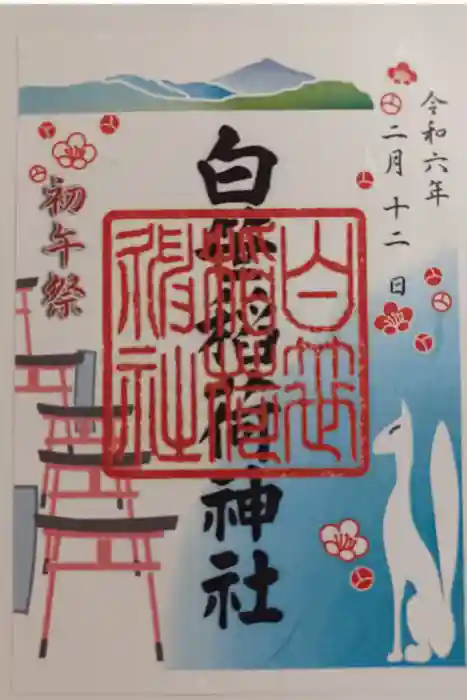 令和六年
二月十二日
白笹稲荷神社
白笹
稲荷
神社
初午祭